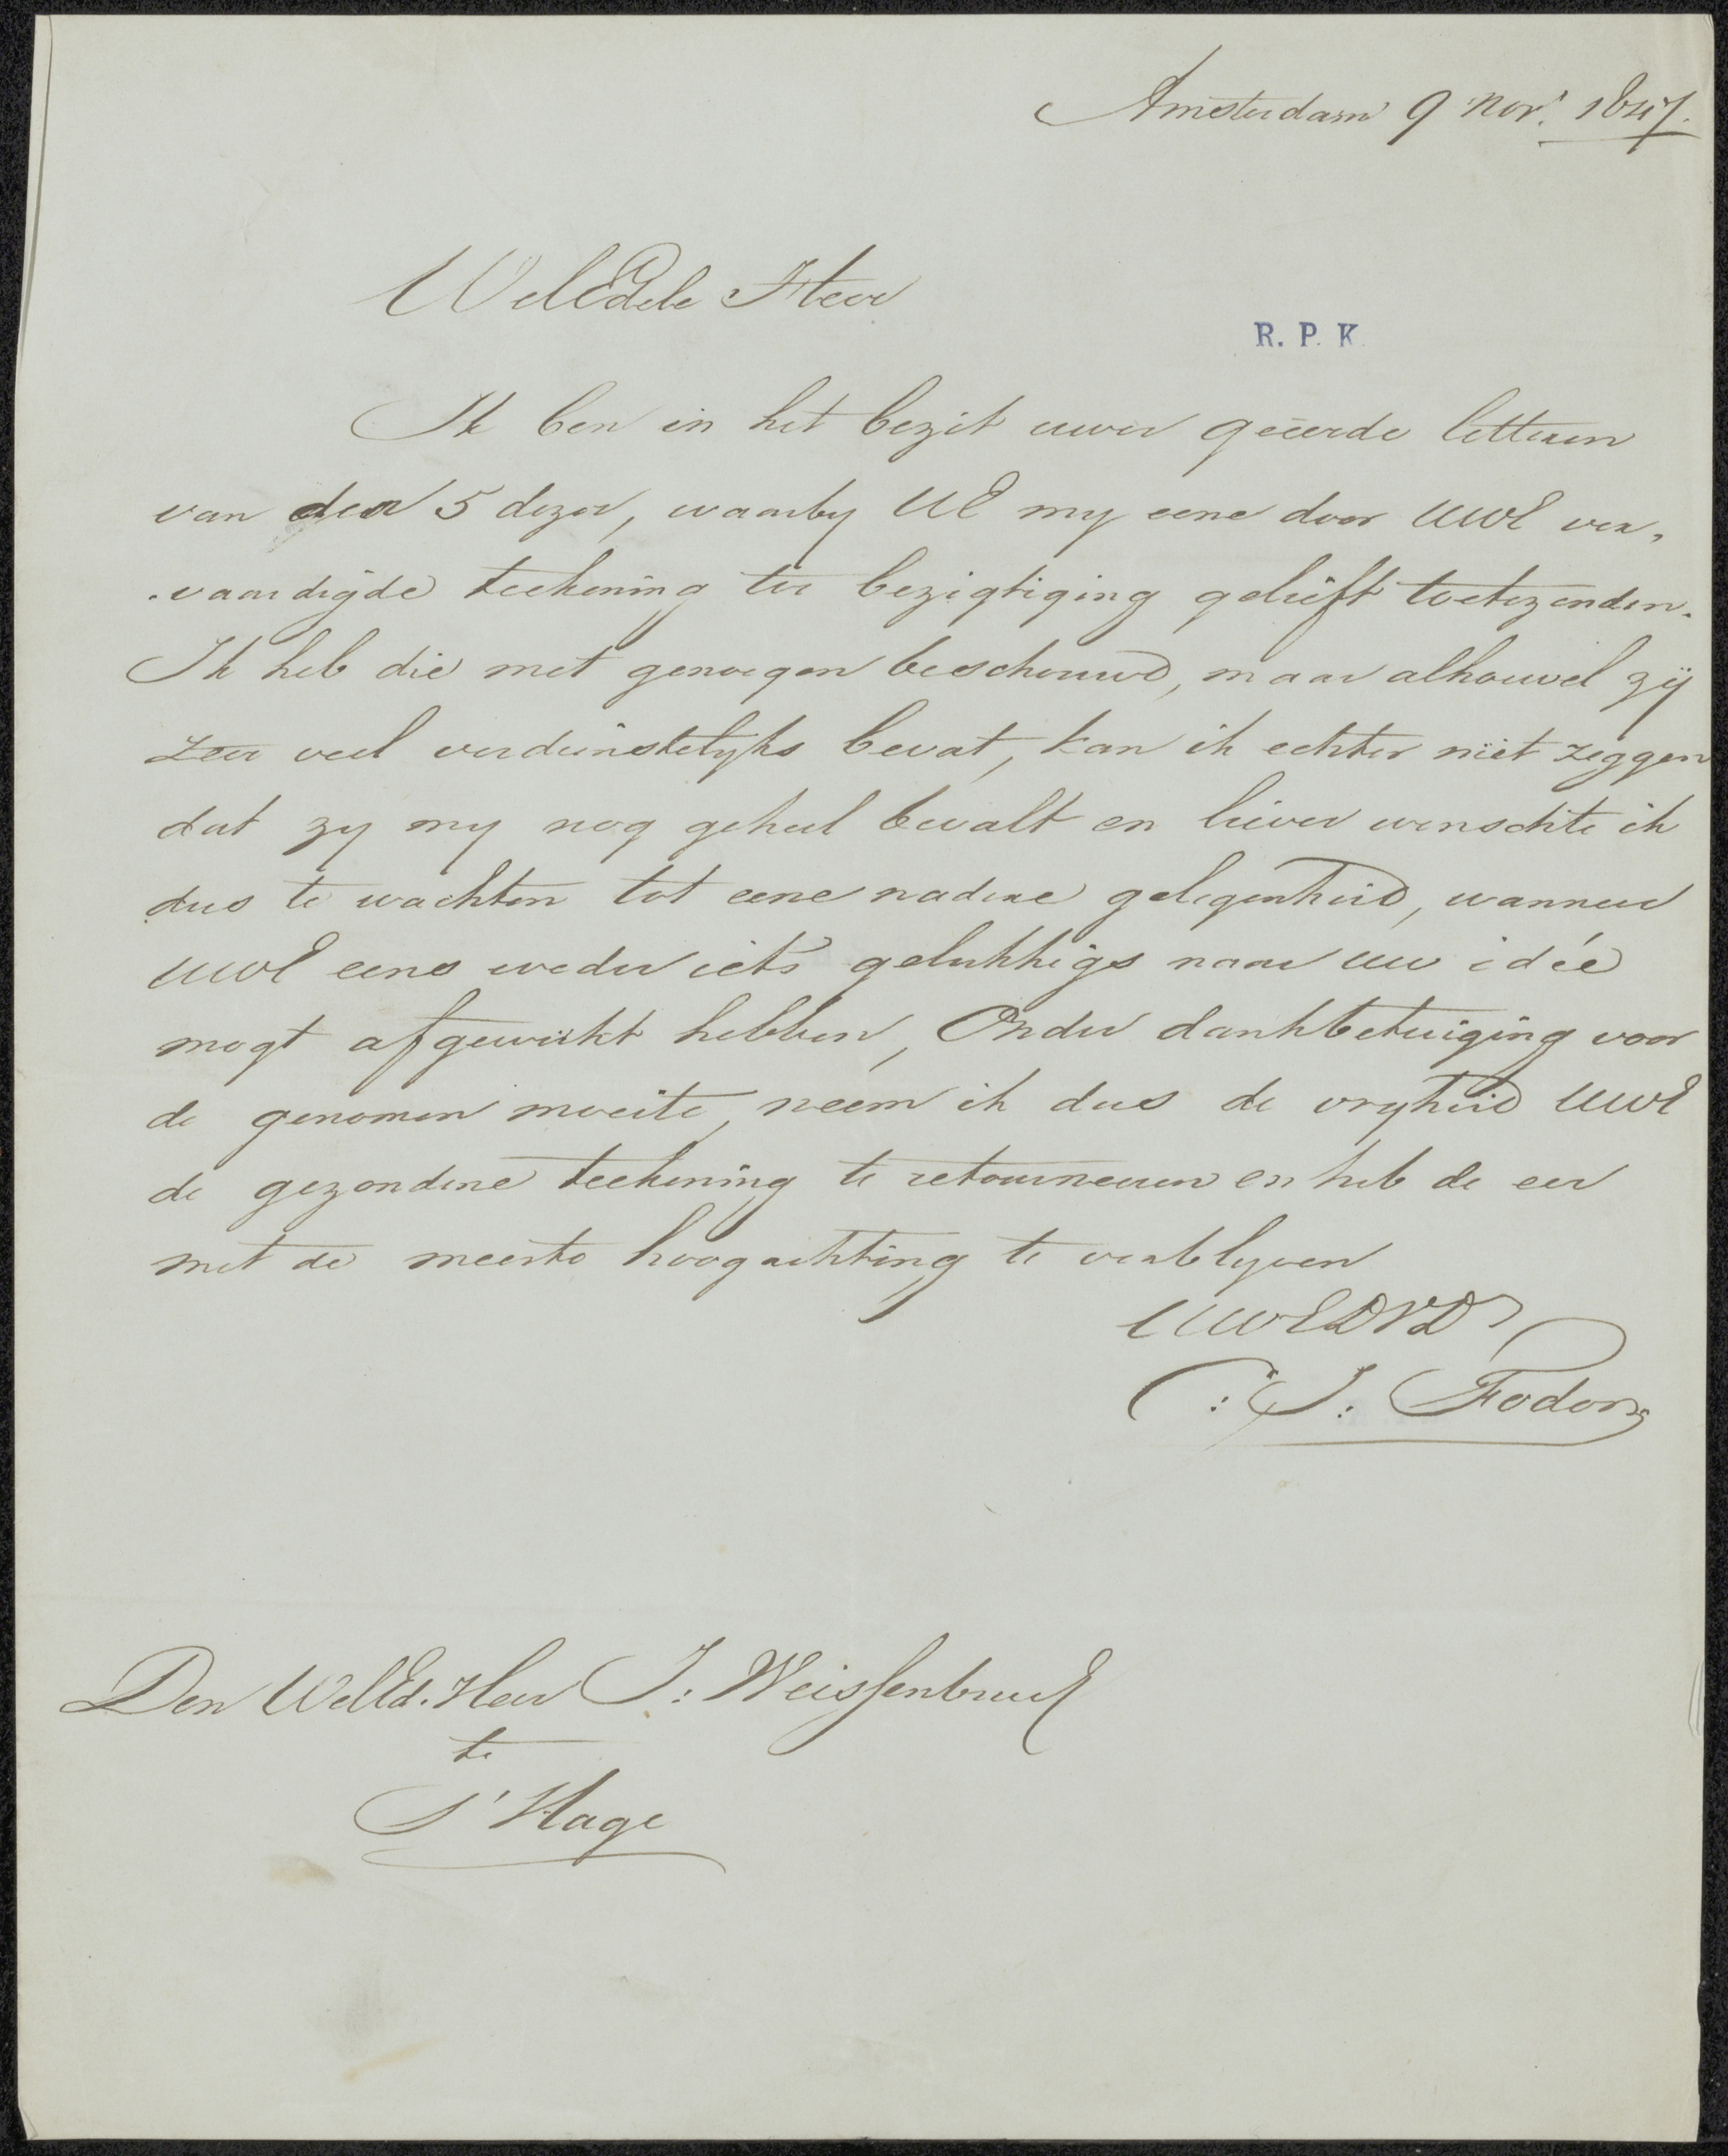 Amsterdam 9 Nov. 1847.
WelEdele Heer
R. P. K.
Ik ben in het bezit uwer geëerde letteren
van den 5 dezer, waarby UE my eene door UWE ver„
„vaardigde teekening ter bezigtiging gelieft toetezenden.
Ik heb die met genoegen beschouwd, maar alhoewel zij
zeer veel verdienstelyks bevat, kan ik echter niet zeggen
dat zy my nog geheel bevalt en liever wenschte ik
dus te wachten tot eene nadere gelegenheid, wanneer
UWE eens weder iets gelukkigs naar uw idée
mogt afgewerkt hebben, Onder dankbetuiging voor
de genomen moeite, neem ik dus de vryheid UWE
de gezondene teekening te retourneren en heb de eer
met de meeste hoogachting te verblyven
UWEDVD
C: J: Fodor
Den WelEd. Heer J: Weissenbruch
te
S'Hage